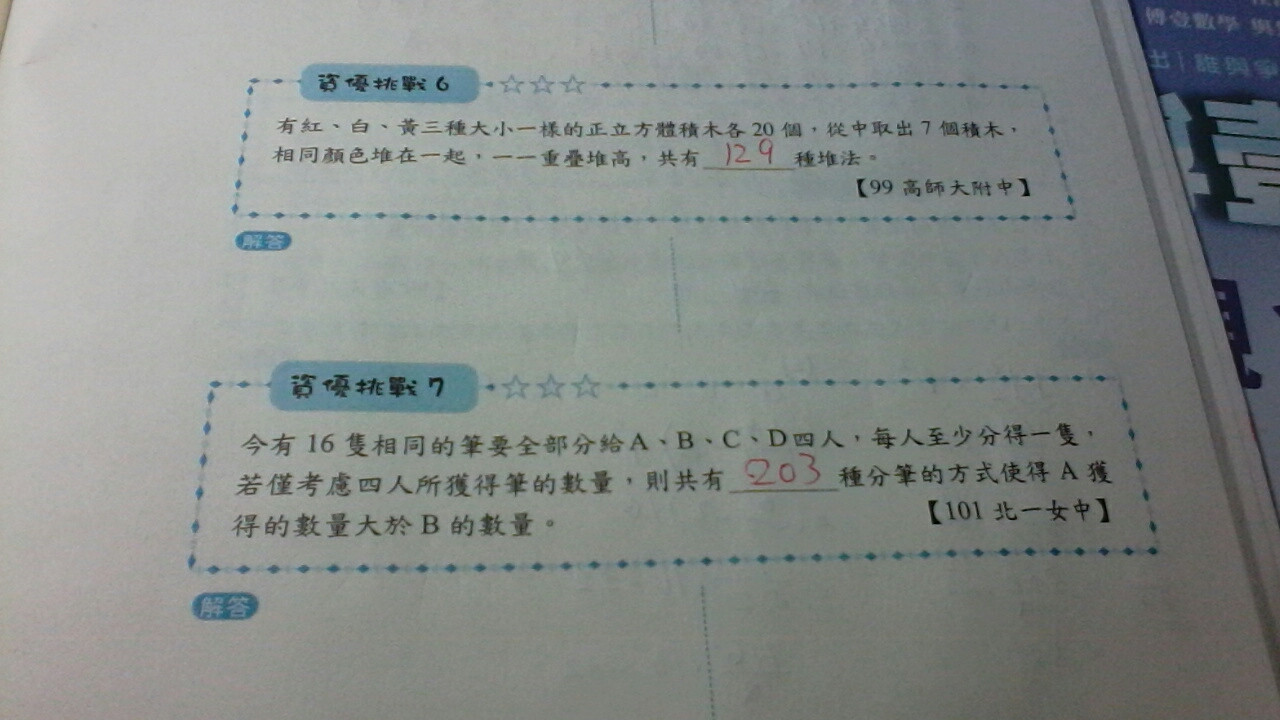 資優挑戰 6
有紅、白、黃三種大小一樣的正立方體積木各 20 個，從中取出 7 個積木，
相同顏色堆在一起，一一重疊堆高，共有 129 種堆法。
【99 高師大附中】
解答
資優挑戰 7
今有 16 隻相同的筆要全部分給 A、B、C、D 四人，每人至少分得一隻，
若僅考慮四人所獲得筆的數量，則共有 203 種分筆的方式使得 A 獲
得的數量大於 B 的數量。
【101 北一女中】
解答
傅壹數學